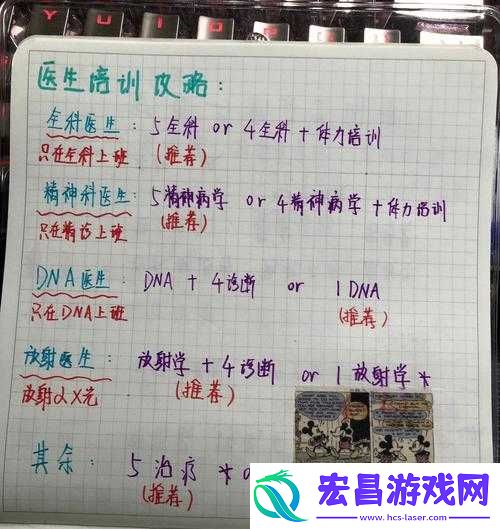 Y U I O P
医生培训攻略:
全科医生: 5全科 or 4全科+体力培训
只在全科上班 (推荐)
精神科医生: 5精神病学 or 4精神病学+体力培训
只在精诊上班 (推荐)
DNA医生: DNA + 4诊断 or 1DNA
只在DNA上班 (推荐)
放射医生: 放射学+4诊断 or 1放射学*
放射以X光 (推荐)
其余: 5治疗*
(推荐)
宏昌游戏网
www.hcs-laser.com